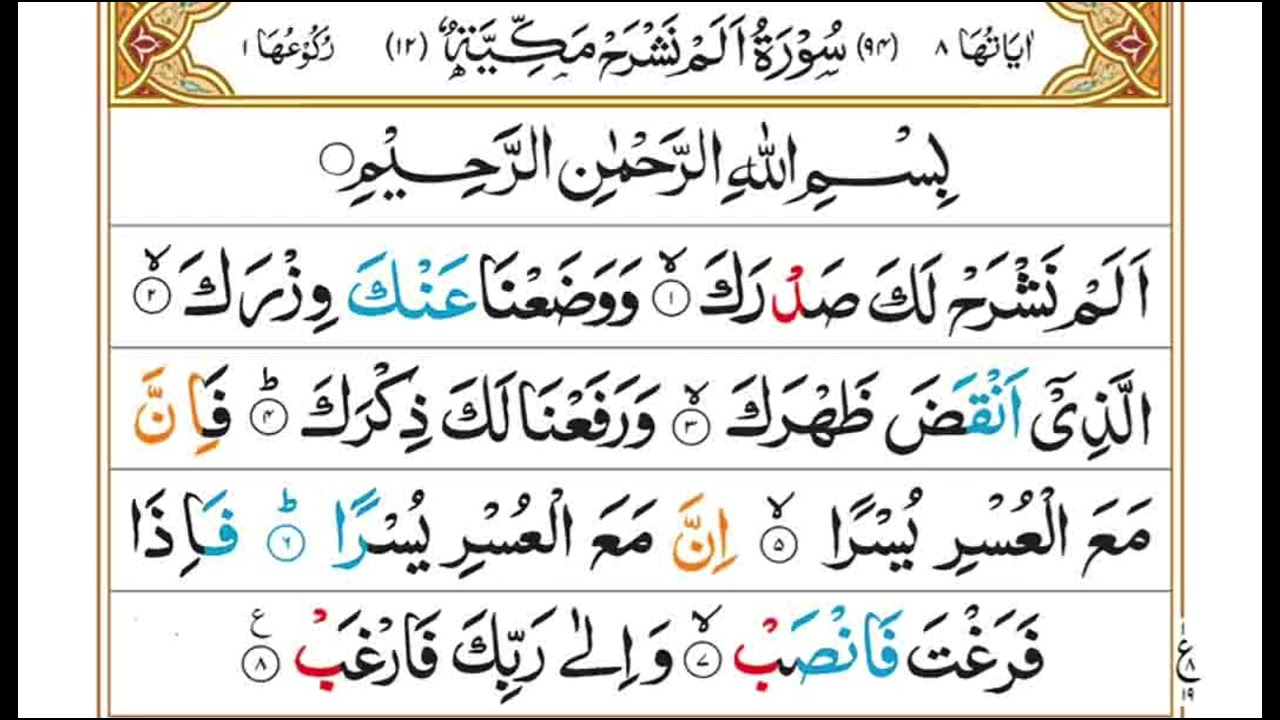 اٰیَاتُهَا ۸ (۹۴) سُوْرَةُ اَلَمْ نَشْرَحْ مَكِّیَّةٌ (۱۲) رُكُوْعُهَا ۱
بِسْمِ اللّٰهِ الرَّحْمٰنِ الرَّحِیْمِ
اَلَمْ نَشْرَحْ لَكَ صَدْرَكَ ۙ﴿۱﴾ وَوَضَعْنَا عَنْكَ وِزْرَكَ ۙ﴿۲﴾
الَّذِیْۤ اَنْقَضَ ظَهْرَكَ ۙ﴿۳﴾ وَرَفَعْنَا لَكَ ذِكْرَكَ ؕ﴿۴﴾ فَاِنَّ
مَعَ الْعُسْرِ یُسْرًا ۙ﴿۵﴾ اِنَّ مَعَ الْعُسْرِ یُسْرًا ؕ﴿۶﴾ فَاِذَا
فَرَغْتَ فَانْصَبْ ۙ﴿۷﴾ وَاِلٰی رَبِّكَ فَارْغَبْ ﴿۸﴾ ع
۱
ع ۸
۱۹